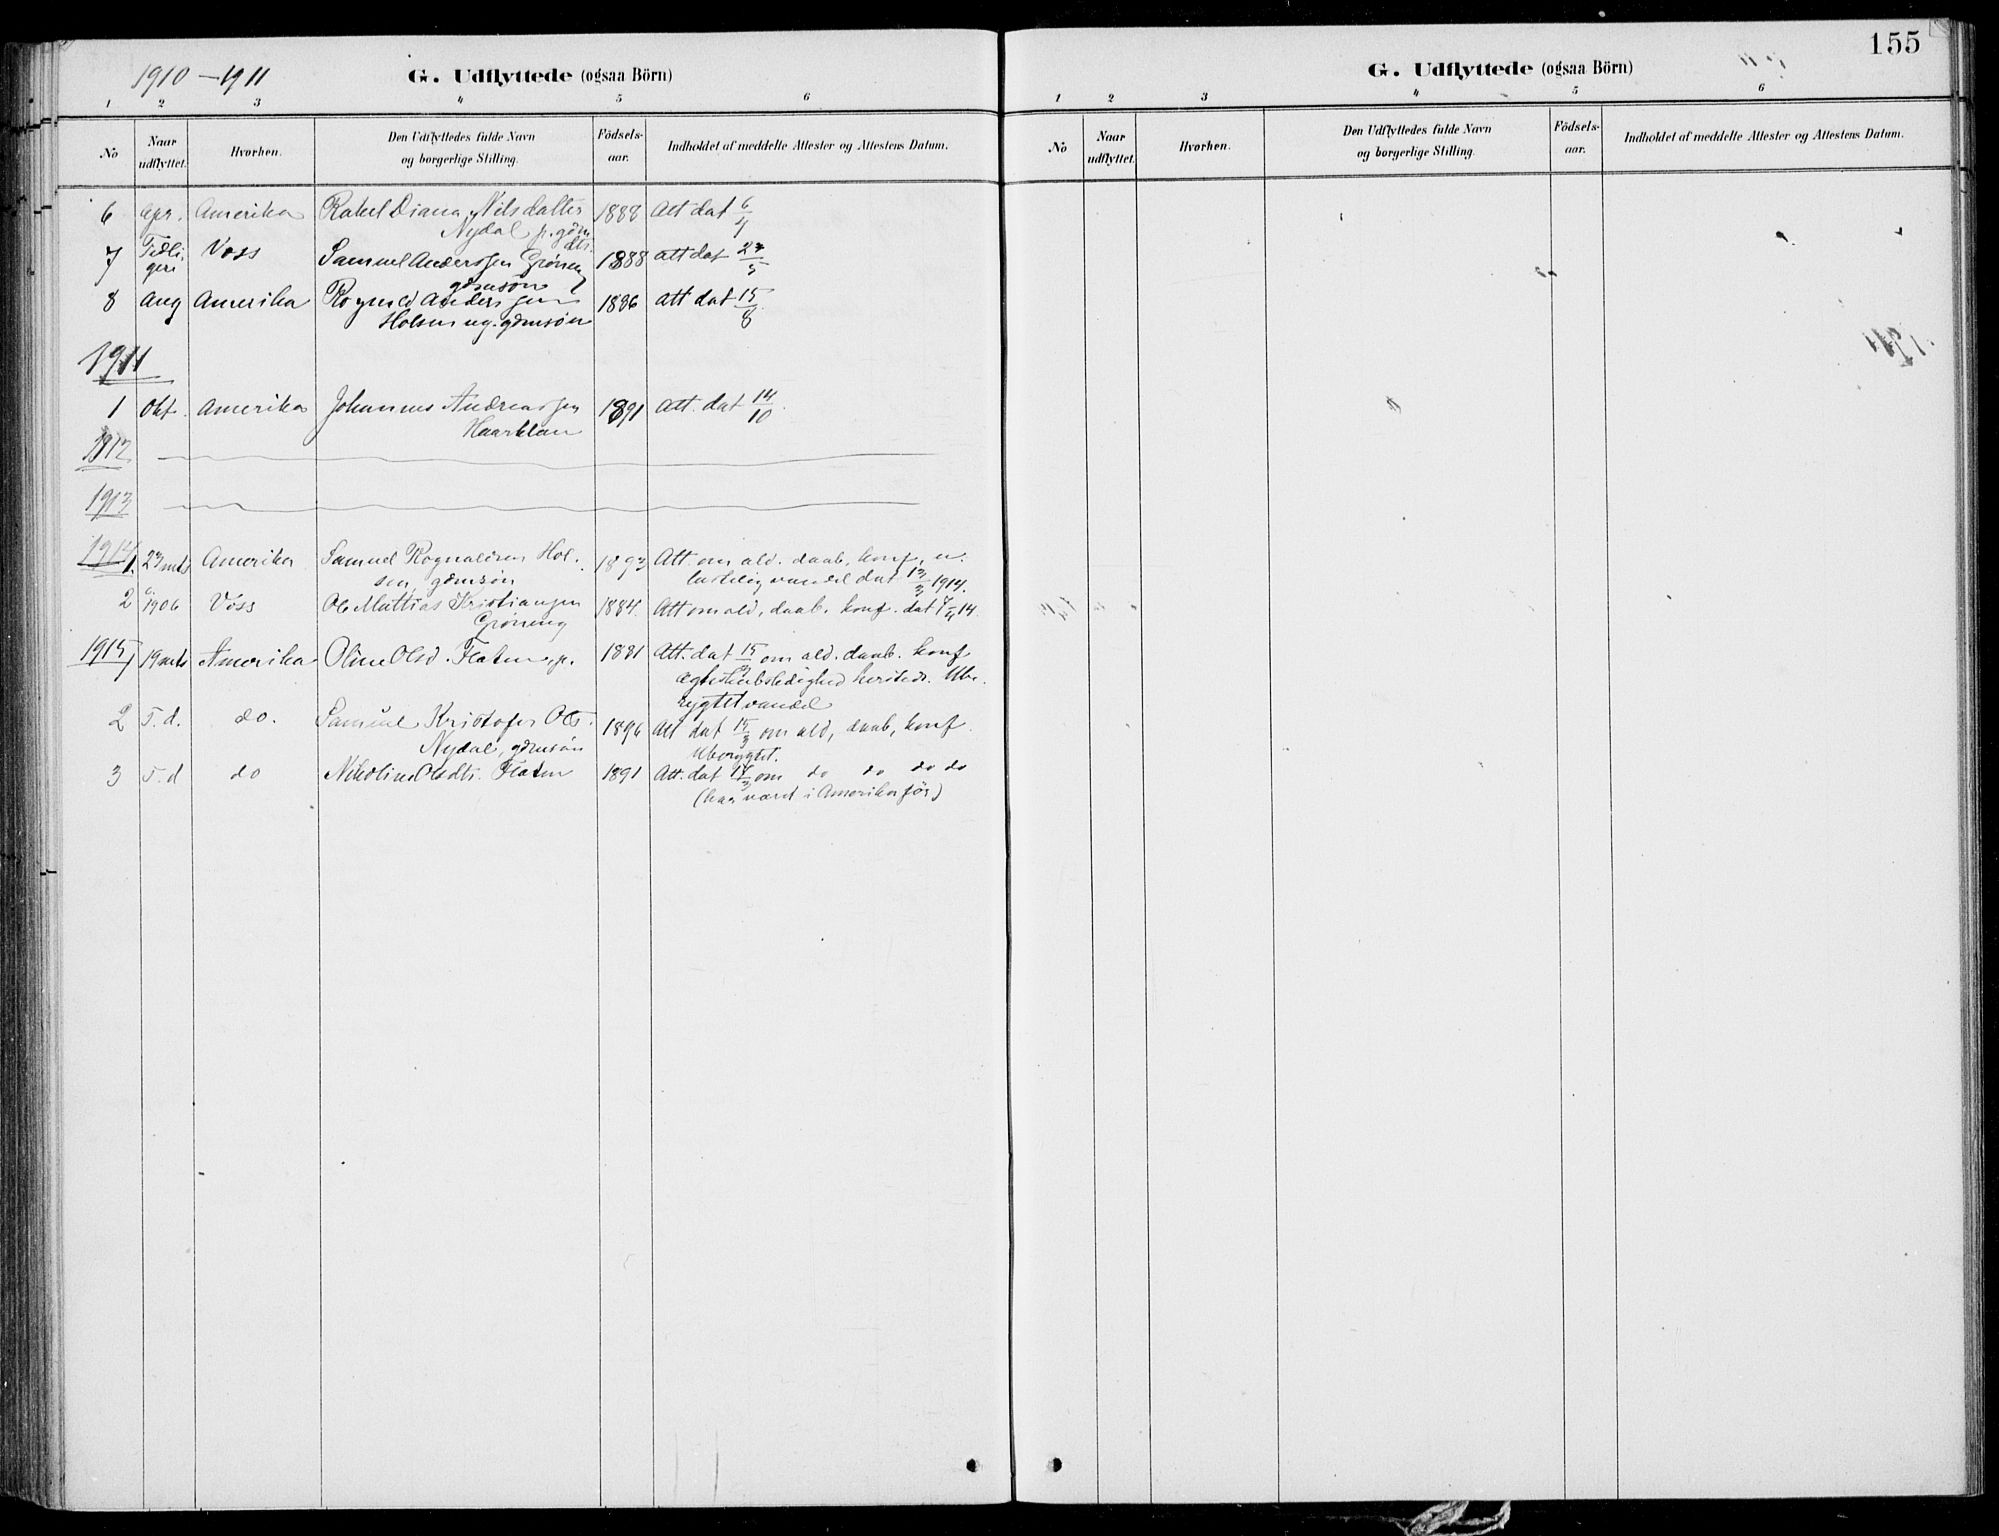 1910 – 1911
G. Udflyttede (ogsaa Börn)
1 2 3 4 5 6
No
Naar udflyttet.
Hvorhen.
Den Udflyttedes fulde Navn og borgerlige Stilling.
Födsels-aar.
Indholdet af meddelte Attester og Attestens Datum.
6 Apr. Amerika Rakel Diana Nilsdatter 1888 Att dat 6/4
Nydal p. gdm dtr.
7 Tidligere Voss Samuel Anderssen Grøning 1888 att dat 27/5
gdmsøn
8 Aug Amerika Rognald Anderssen 1886 att dat 15/8
Holsen ug. gdmsøn
1911
1 Okt. Amerika Johannes Andreassen 1891 Att. dat 14/10.
Haarklau
1912
1913
1914
1. 23 mts Amerika Samuel Rognaldsen Hol- 1893 Att. om ald. daab, konf, u-
sen, gdmsøn lastelig vandel dat 13/3 1914.
2 1906 Voss Ole Mattias Kristiansen 1884. Att om ald, daab. konf. dat 14.
Grøning
1915
1 19 mts Amerika Oline Olsd. Flaten, p. 1881 Att. dat 15/3 om ald. daab. konf
ægteskabsledighed Ube-
rygtet vandel
2 S. d. do. Samuel Kristofer Ols. 1896 Att dat 15/3 om ald, daab, konf.
Nydal, gdmsøn Uberygtet.
3 S. d do Nikoline Olsdtr. Flaten 1891 Att. dat 15/3 om do do do do
(har været i Amerika før)
155
G. Udflyttede (ogsaa Börn)
1 2 3 4 5 6
No
Naar udflyttet.
Hvorhen.
Den Udflyttedes fulde Navn og borgerlige Stilling.
Födsels-aar.
Indholdet af meddelte Attester og Attestens Datum.